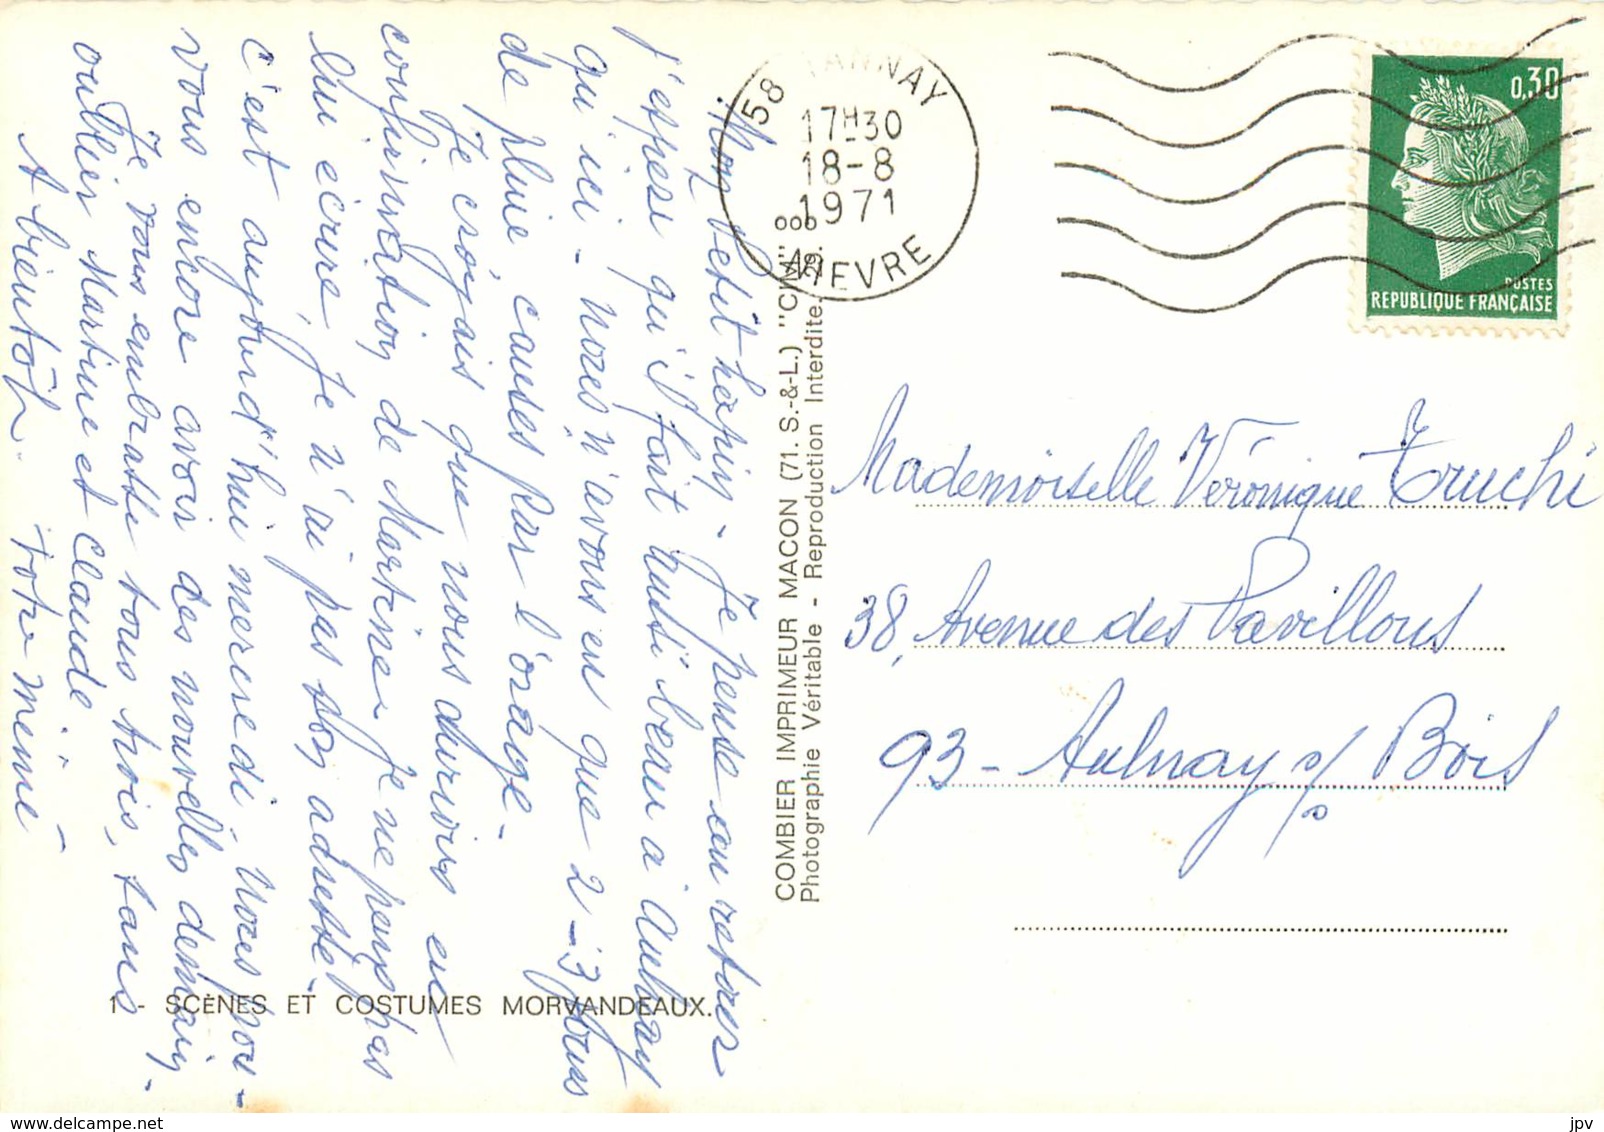 Mon Petit lapin. Je pense au retour
j'espère qu'il fait aussi beau à Aulnay
qu'ici - nous n'avons eu que 2-3 jours
de pluie, causés par l'orage.
Je croyais que nous aurions eu
confirmation de Martine. Je ne peux pas
lui écrire, je n'ai pas son adresse.
c'est aujourd'hui mercredi, nous pou-
vons encore avoir des nouvelles demain.
Je vous embrasse tous trois, sans
oublier Martine et Claude.
A bientôt. votre mémé
1 - SCÈNES ET COSTUMES MORVANDEAUX.
COMBIER IMPRIMEUR MACON (71. S.-&-L.) "CIM"
Photographie Véritable - Reproduction Interdite.
58 TANNAY
17H30
18-8
1971
NIEVRE
0,30
POSTES
REPUBLIQUE FRANÇAISE
Mademoiselle Véronique Truchi
38, Avenue des Pavillons
93 - Aulnay s/s Bois
jpv